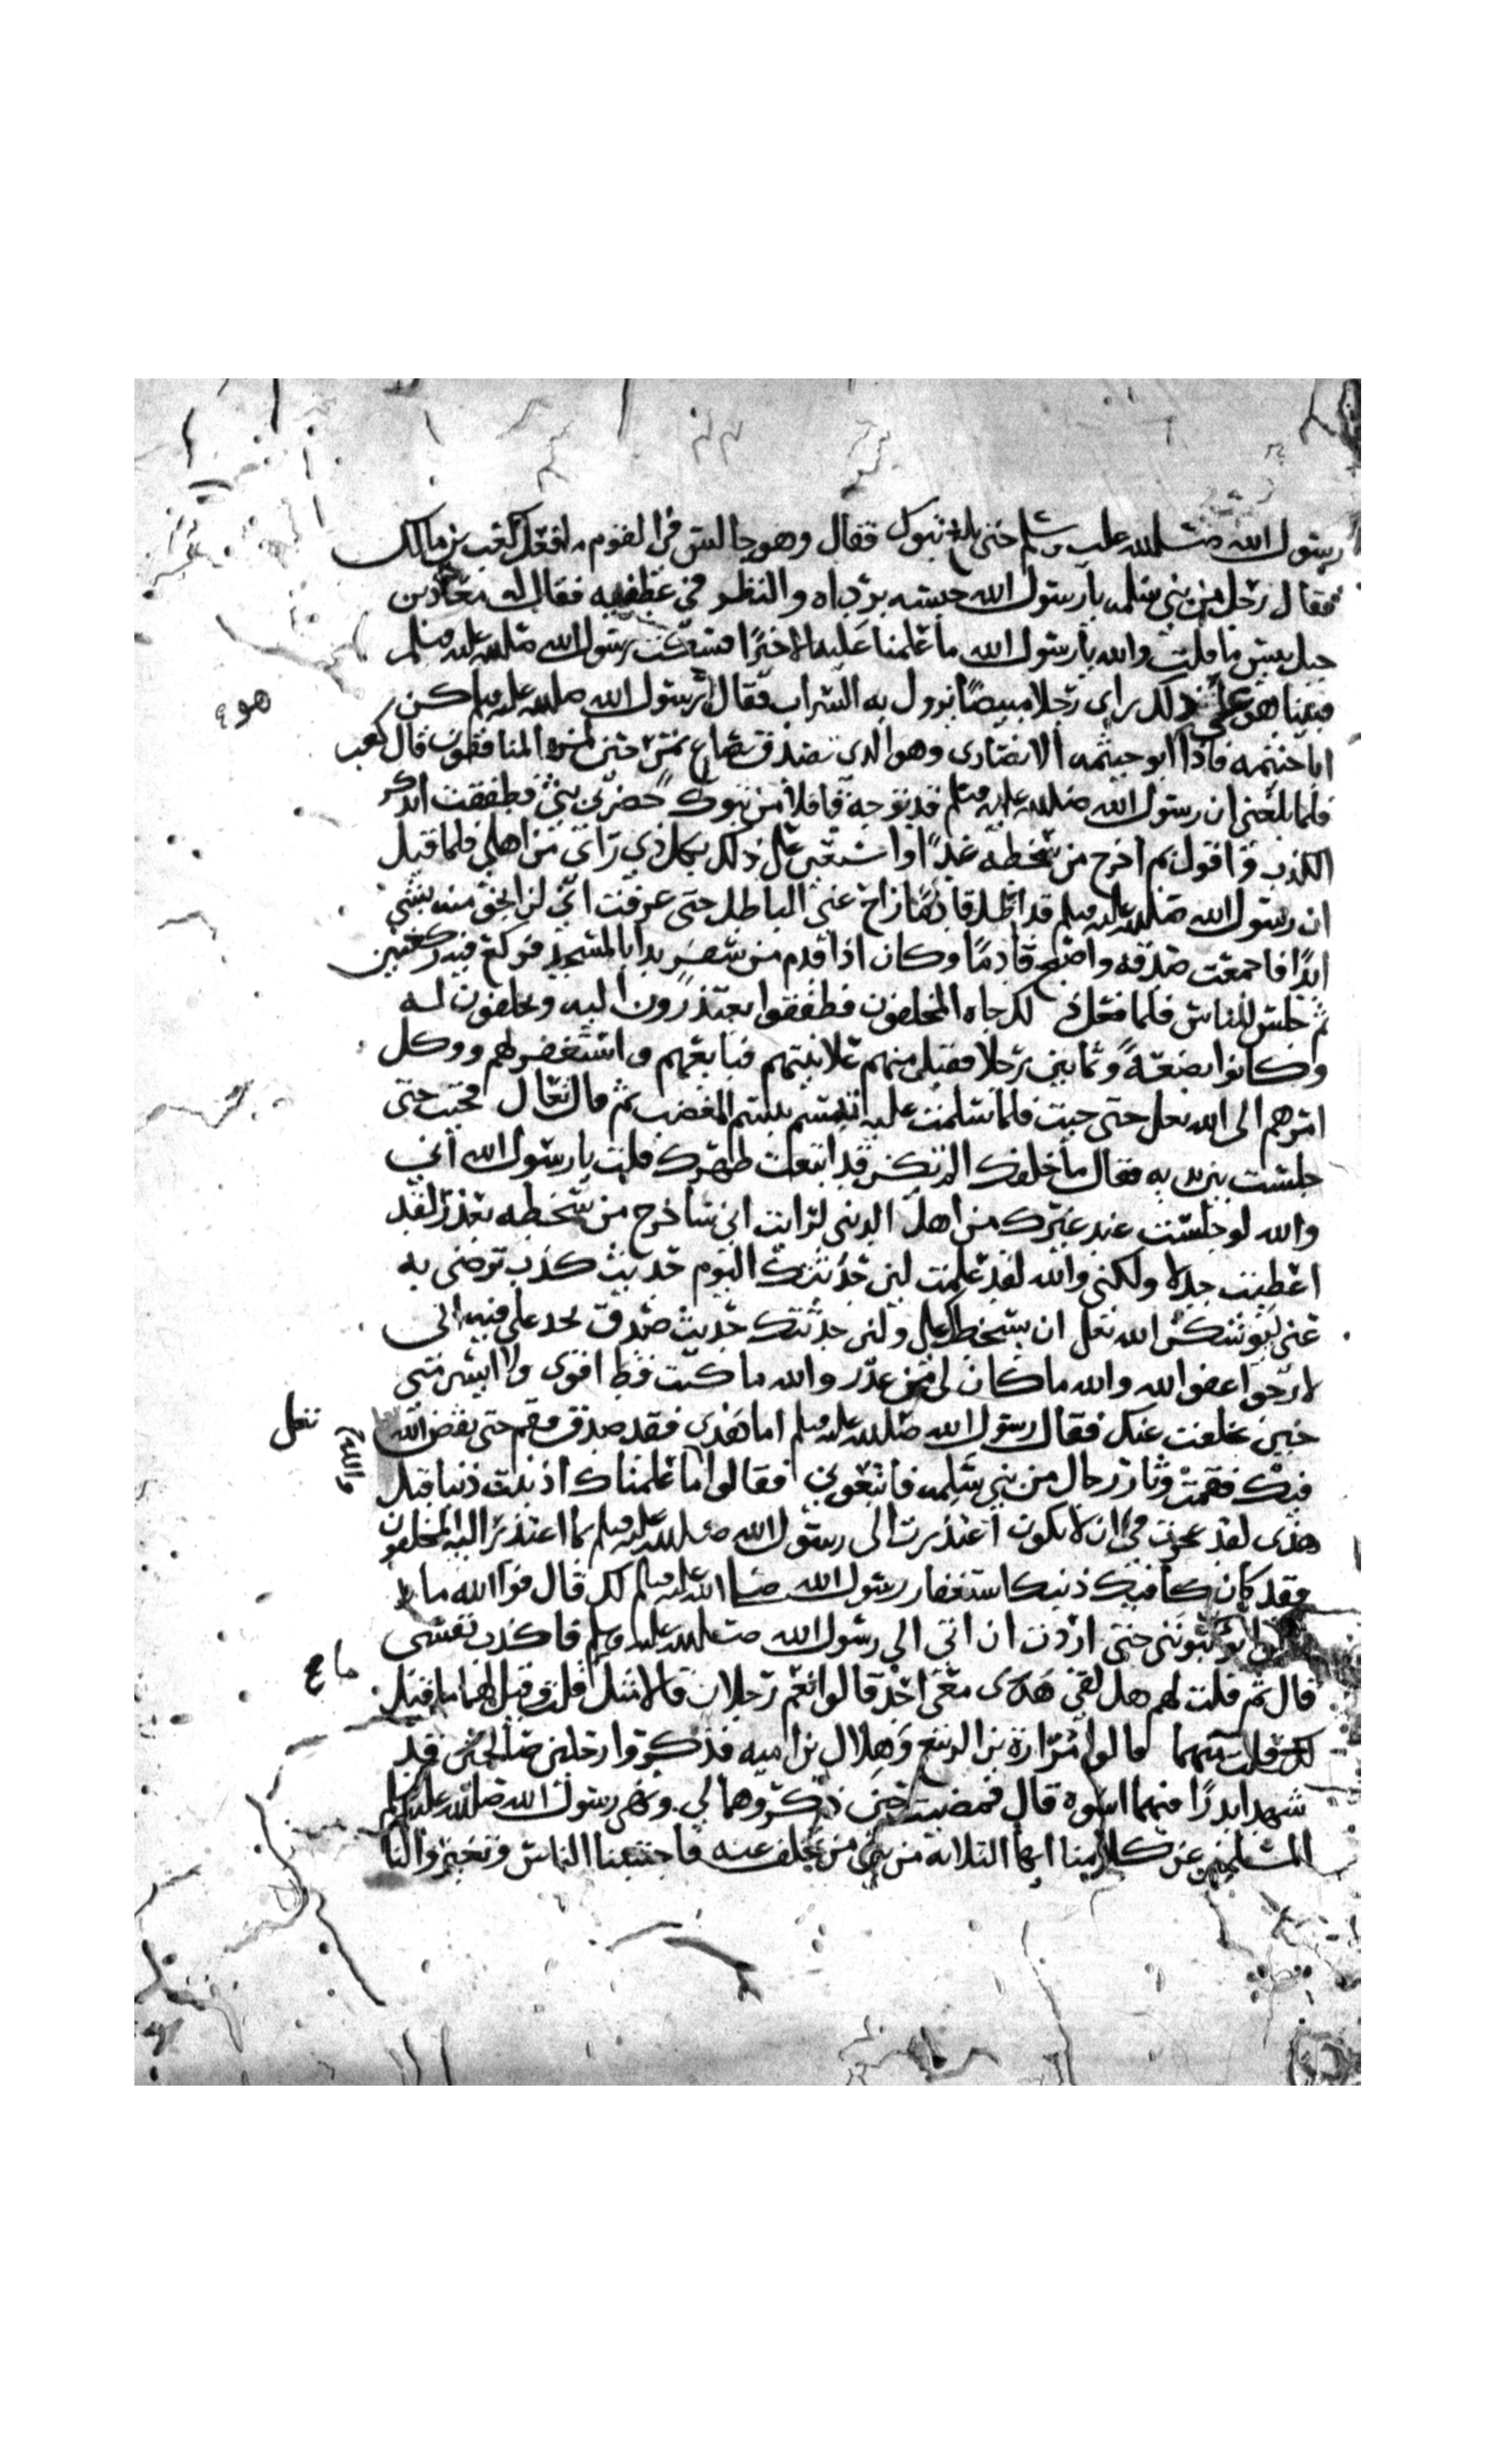 رسول الله صلى الله عليه وسلم حتى بلغ تبوك فقال وهو جالس في القوم ما فعل كعب بن مالك
فقال رجل من بني سلمه يا رسول الله حبسه برداه والنظر في عطفيه فقال له معاذ بن
جبل بيس ما قلت والله يا رسول الله ما علمنا عليه الا خيرًا فسكت رسول الله صلى الله عليه وسلم
فبينا هو على ذلك راى رجلا مبيضًا يزول به السراب فقال رسول الله صلى الله عليه وسلم كن
ابا خيثمه فاذا ابو خيثمه الانصارى وهو الذى تصدق بصاع تمر حين لمزه المنافقون قال كعب
فلما بلغني ان رسول الله صلى الله عليه وسلم قد توجه قافلا من تبوك حضرني بثي فطفقت اتذكر
الكذب واقول بم اخرج من سخطه غدًا واستعين على ذلك بكل ذي راى من اهلي فلما قيل
ان رسول الله صلى الله عليه وسلم قد اظل قادمًا زاح عني الباطل حتى عرفت اني لن انجو منه بشي
ابدًا فاجمعت صدقه واصبح قادمًا وكان اذا قدم من سفر بدا بالمسجد فركع فيه ركعتين
ثم جلس للناس فلما فعل ذلك جاه المخلفون فطفقوا يعتذرون اليه ويحلفون له
وكانوا بضعةً وثمانين رجلا فقبل منهم علانيتهم فبايعهم واستغفر لهم ووكل
امرهم الى الله تعلى حتى جيت فلما سلمت عليه تبسم تبسم المغضب ثم قال تعال فجيت حتى
جلست بين يديه فقال ما خلفك الم تكن قد ابتعت ظهرك قلت يا رسول الله اني
والله لو جلست عند غيرك من اهل الدنيا لرايت اني ساخرج من سخطه بعذر لقد
اعطيت جدلا ولكني والله لقد علمت لين حدثتك اليوم حديث كذب ترضى به
عني ليوشكن الله تعلى ان يسخطك علي ولين حدثتك حديث صدق تجد علي فيه اني
لارجوا عفو الله والله ما كان لي من عذر والله ما كنت قط اقوى ولا ايسر مني
حين تخلفت عنك فقال رسول الله صلى الله عليه وسلم اما هذى فقد صدق فقم حتى يقضى الله
فيك فقمت وثار رجال من بني سلمه فاتبعوني فقالوا ما علمناك اذنبت ذنبا قبل
هذى لقد عجزت في ان لا تكون اعتذرت الى رسول الله صلى الله عليه وسلم بما اعتذر اليه المخلفون
فقد كان كافيك ذنبك استغفار رسول الله صلى الله عليه وسلم لك قال فوالله ما
يونبونني حتى اردت ان اتى الى رسول الله صلى الله عليه وسلم فاكذب نفسي
قال ثم قلت لهم هل لقي هذى معى احد قالوا نعم رجلان قالا مثل ما قلت وقيل لهما ما قيل
لك قلت من هما قالوا مرارة بن الربيع وهلال بن اميه فذكروا رجلين صالحين قد
شهدا بدرًا فيهما اسوه قال فمضيت حين ذكروهما لي ونهى رسول الله صلى الله عليه وسلم
المسلمين عن كلامنا ايها الثلاثة من بين من تخلف عنه فاجتنبنا الناس وتغيروا لنا